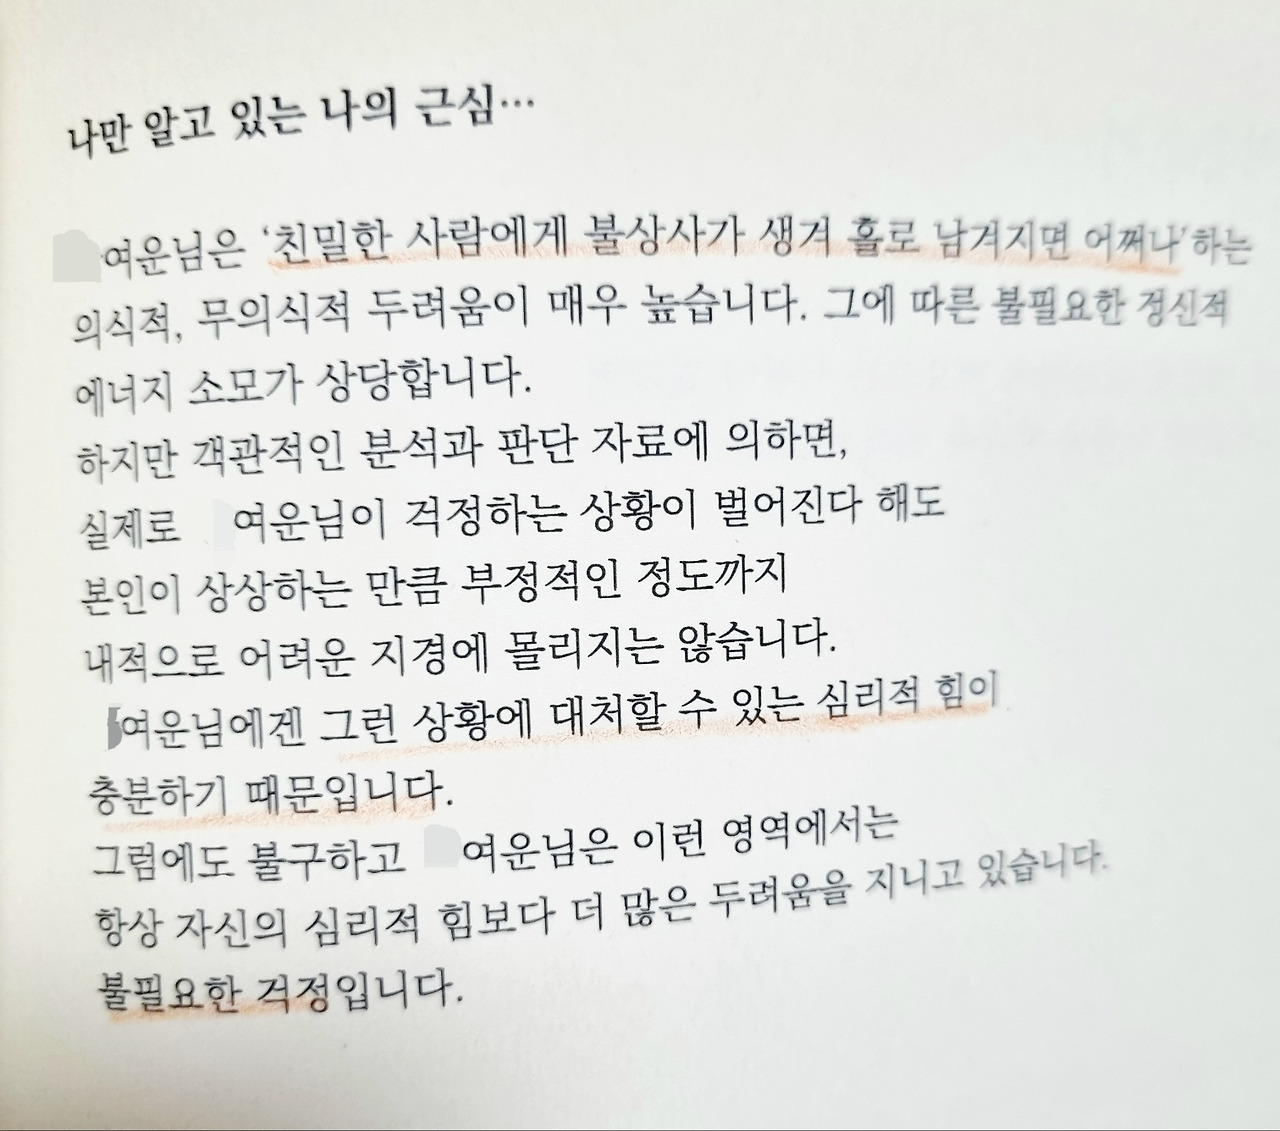 나만 알고 있는 나의 근심…
여운님은 ‘친밀한 사람에게 불상사가 생겨 홀로 남겨지면 어쩌나’하는
의식적, 무의식적 두려움이 매우 높습니다. 그에 따른 불필요한 정신적
에너지 소모가 상당합니다.
하지만 객관적인 분석과 판단 자료에 의하면,
실제로 여운님이 걱정하는 상황이 벌어진다 해도
본인이 상상하는 만큼 부정적인 정도까지
내적으로 어려운 지경에 몰리지는 않습니다.
여운님에겐 그런 상황에 대처할 수 있는 심리적 힘이
충분하기 때문입니다.
그럼에도 불구하고 여운님은 이런 영역에서는
항상 자신의 심리적 힘보다 더 많은 두려움을 지니고 있습니다.
불필요한 걱정입니다.